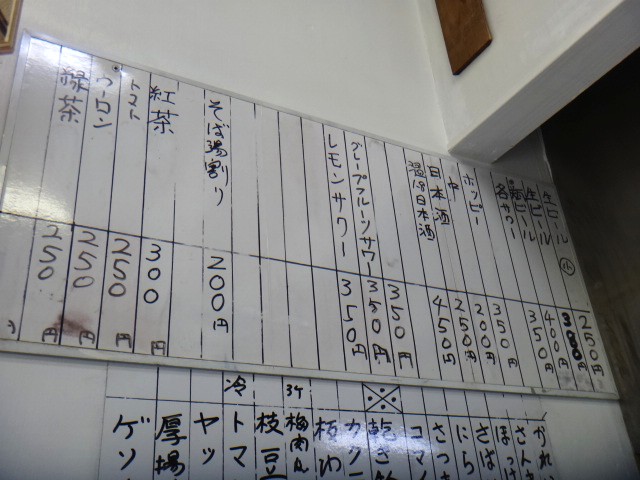 生ビール 小 250円
生ビール 380円
瓶ビール 400円
各サワー 350円
ホッピー 350
中 200円
日本酒 250円
日本酒 450円
350円
グレープフルーツサワー 350円
レモンサワー 350円
そば湯割り 200円
紅茶 300円
トマト 250円
ウーロン 250円
緑茶 250円
かれい
ほっけ
さば
にら
コマ
乾き
板わ
3ケ 梅肉
枝豆
冷 トマ
ヤッ
厚揚
ゲソ